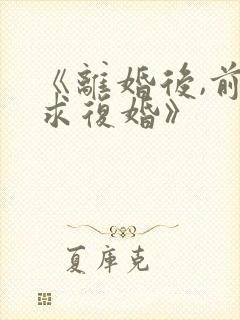 《離婚後,前
求復婚》
夏庫克